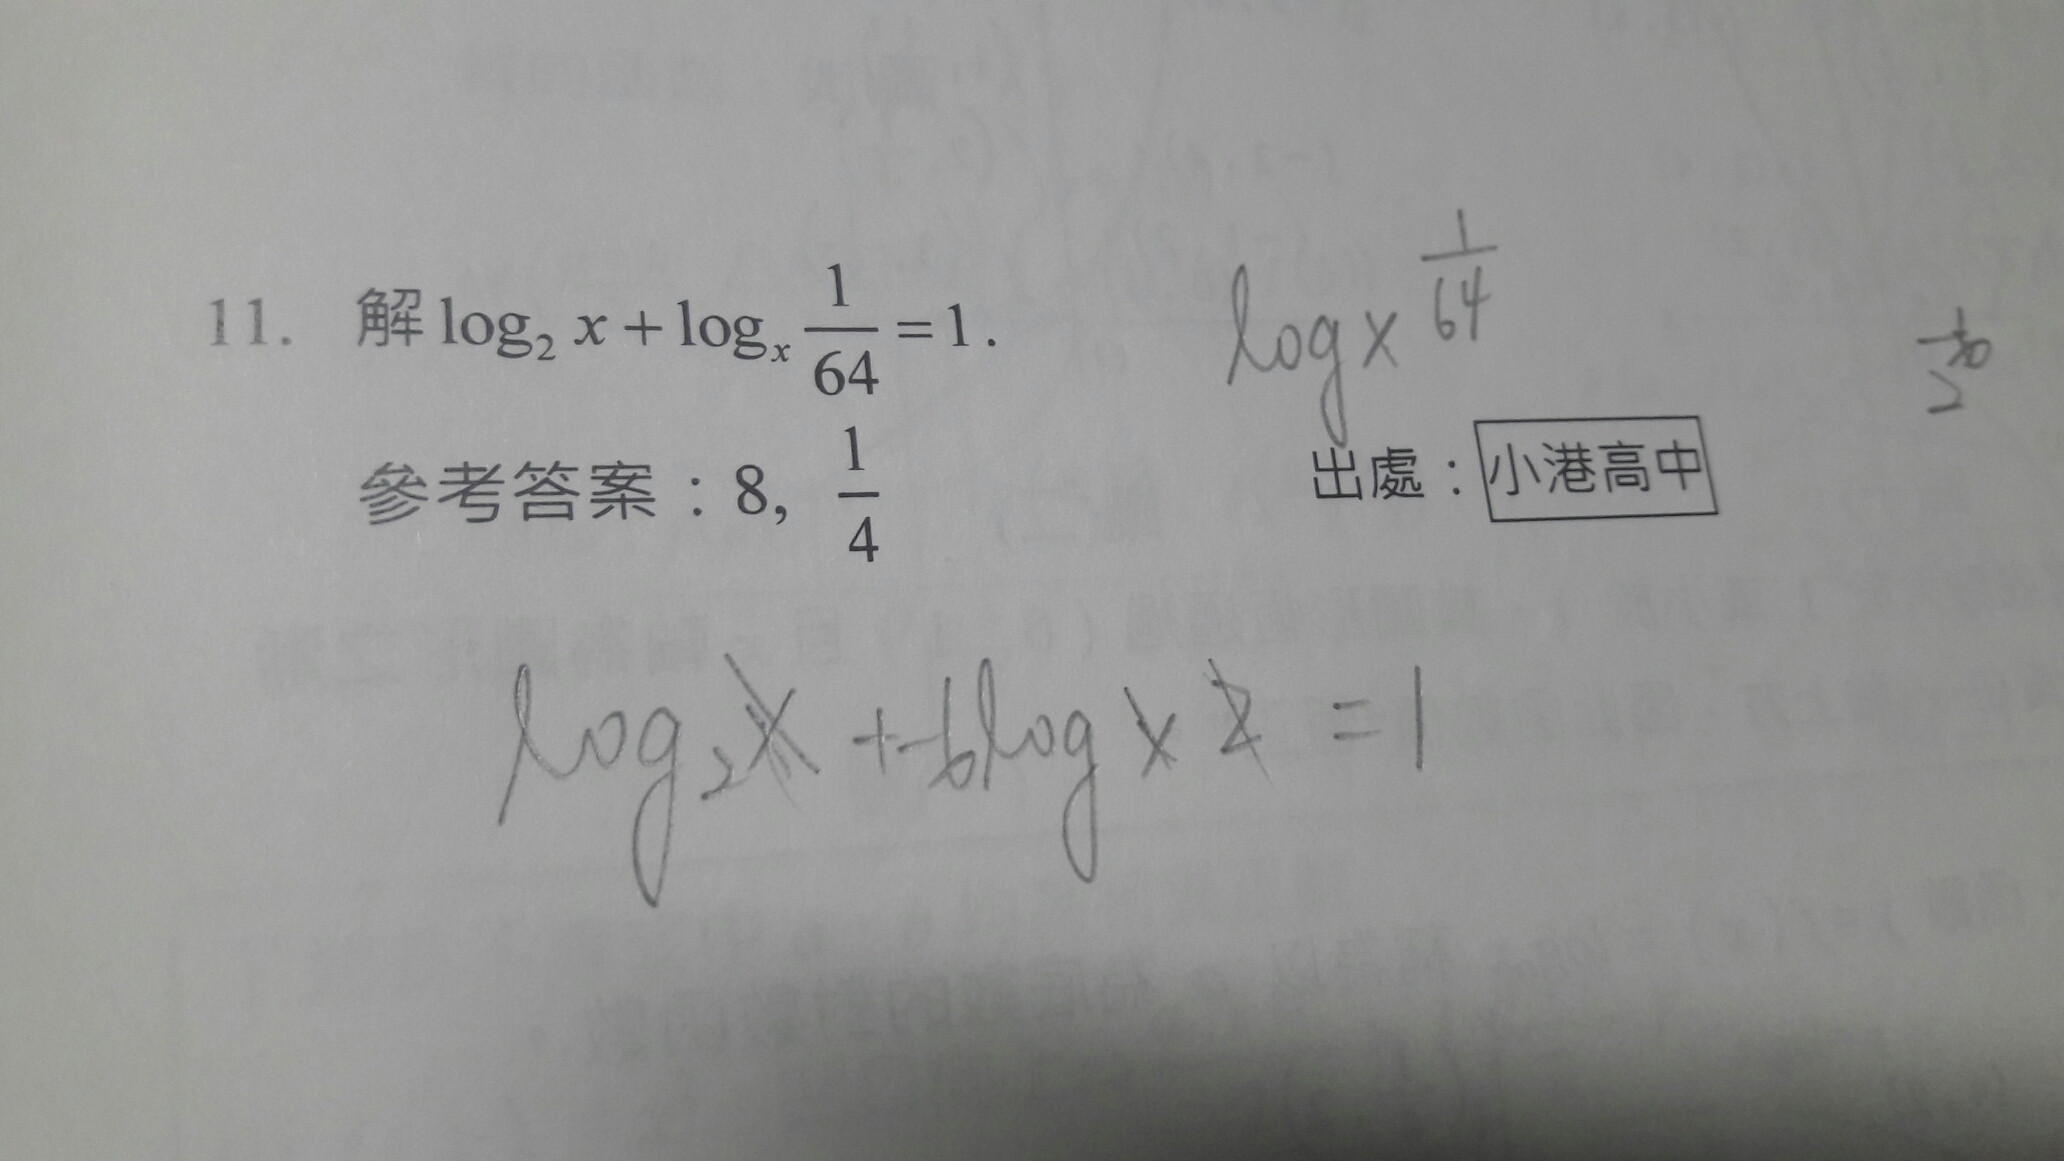 11. 解 log₂ x + logₓ 1/64 = 1.
log x 1/64
參考答案：8, 1/4
出處：小港高中
log₂x + -6log x 2 = 1